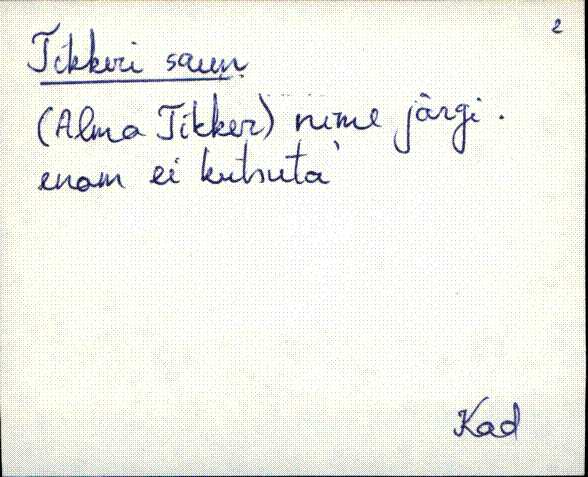 2
Tikkeri saun
(Alma Tikker) nime järgi.
enam ei kutsuta
Kad